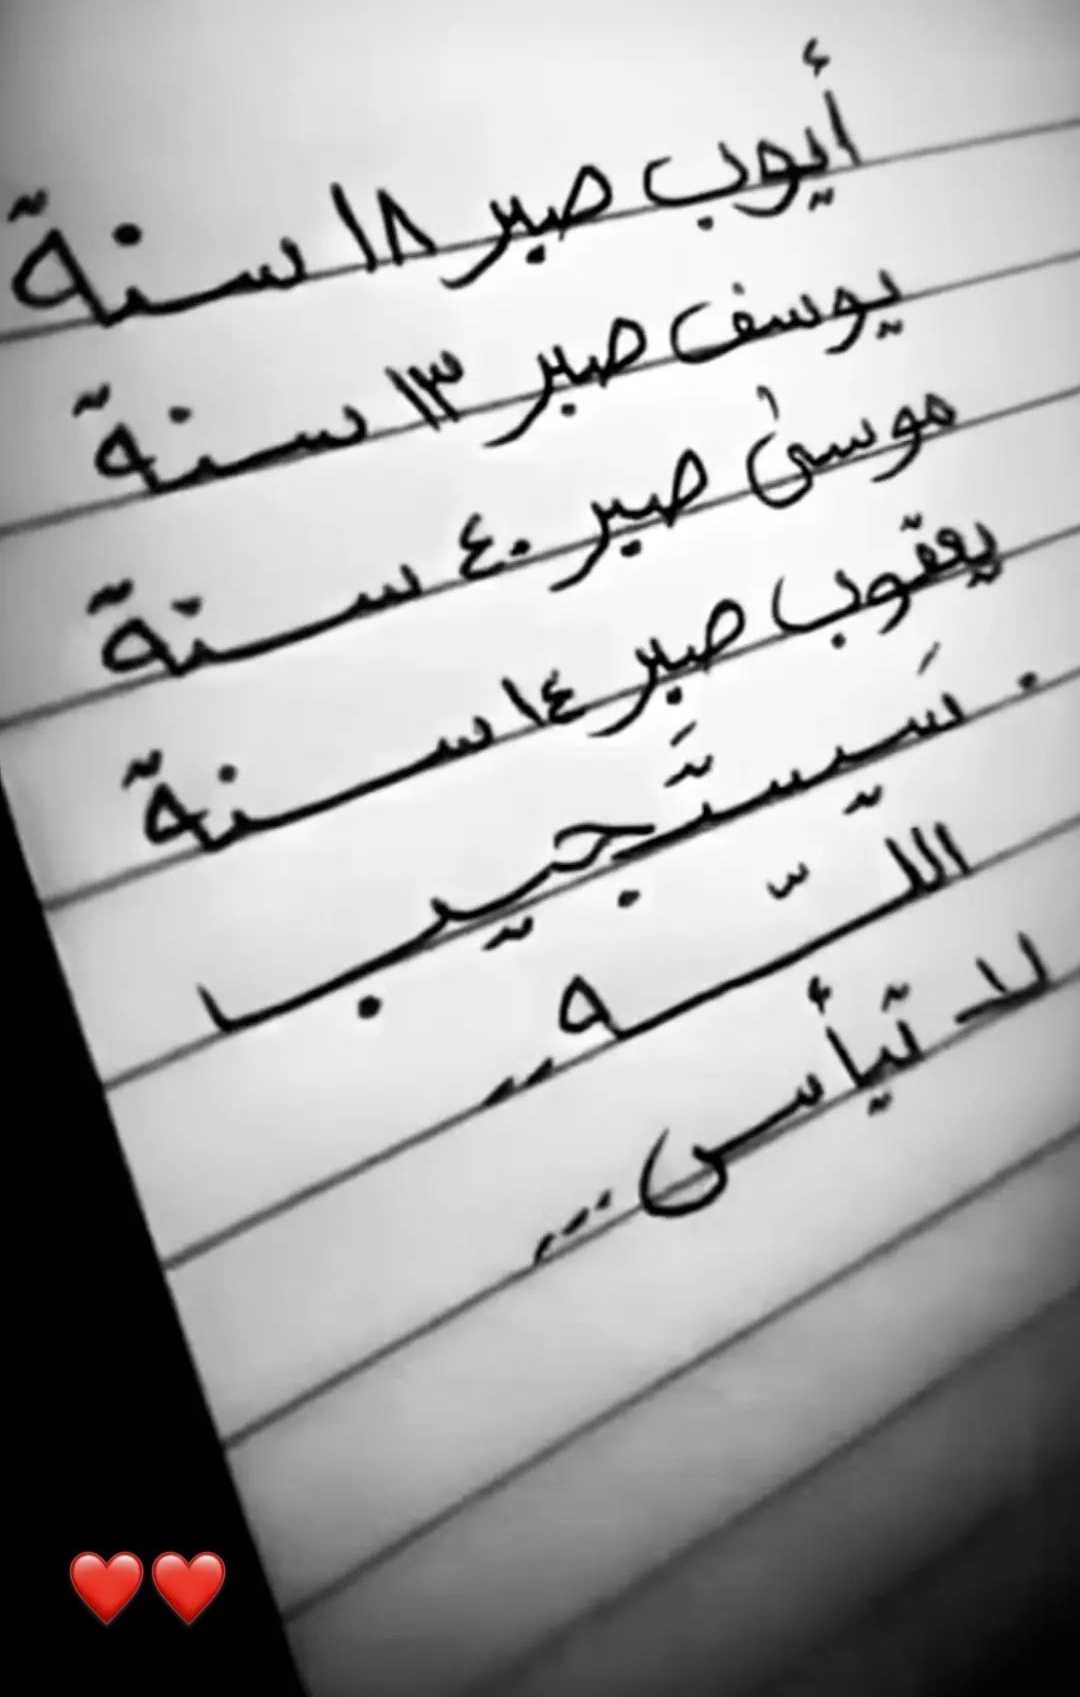 أيوب صبر ١٨ سنة
يوسف صبر ١٣ سنة
موسىٰ صبر ٤٠ سنة
يعقوب صبر ١٤ سنة
. سَيستَجيب
اللّه ..
لا تيأس ...